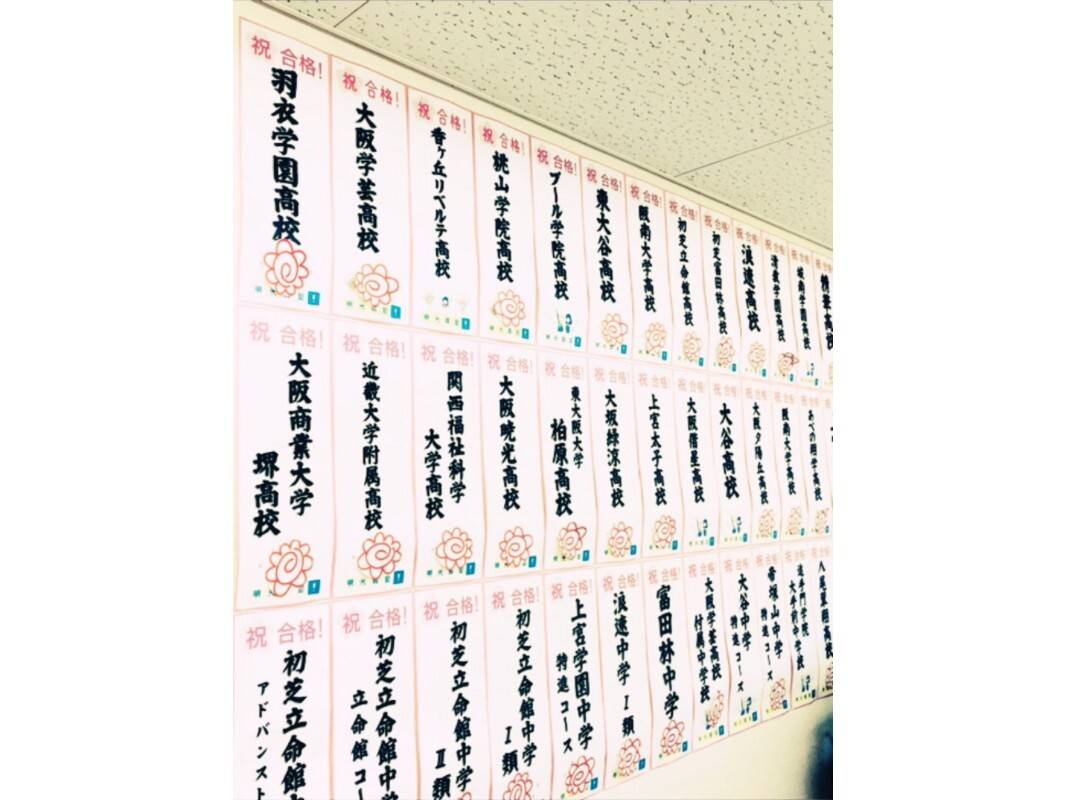 祝 合格!
羽衣学園高校
祝 合格!
大阪学芸高校
祝 合格!
香ヶ丘リベルテ高校
祝 合格!
桃山学院高校
祝 合格!
プール学院高校
祝 合格!
東大谷高校
祝 合格!
阪南大学高校
祝 合格!
初芝立命館高校
祝 合格!
初芝富田林高校
祝 合格!
浪速高校
祝 合格
清教学園高校
祝 合格
城南学園高校
祝 合格
精華高校
祝 合格!
大阪商業大学
堺高校
祝 合格!
近畿大学附属高校
祝 合格!
関西福祉科学
大学高校
祝 合格!
大阪暁光高校
祝 合格!
東大阪大学
柏原高校
祝 合格!
大阪緑涼高校
祝 合格!
上宮太子高校
祝 合格!
大阪偕星高校
祝 合格!
大谷高校
祝 合格
大阪夕陽丘高校
祝 合格
阪南大学高校
祝 合格
あべの翔学高校
祝 合格!
初芝立命館
アドバンスト
祝 合格!
初芝立命館中
立命館コ
祝 合格!
初芝立命館中学
Ⅱ類
祝 合格!
初芝立命館中学
Ⅰ類
祝 合格!
上宮学園中学
特進コース
祝 合格!
浪速中学 Ⅰ類
祝 合格!
富田林中学
祝 合格!
大阪学芸高校
付属中学校
祝 合格!
大谷中学
特進コース
祝 合格
帝塚山中学
特進コース
祝 合格
追手門学院
大手前中学校
祝 合格
八尾翠翔高校